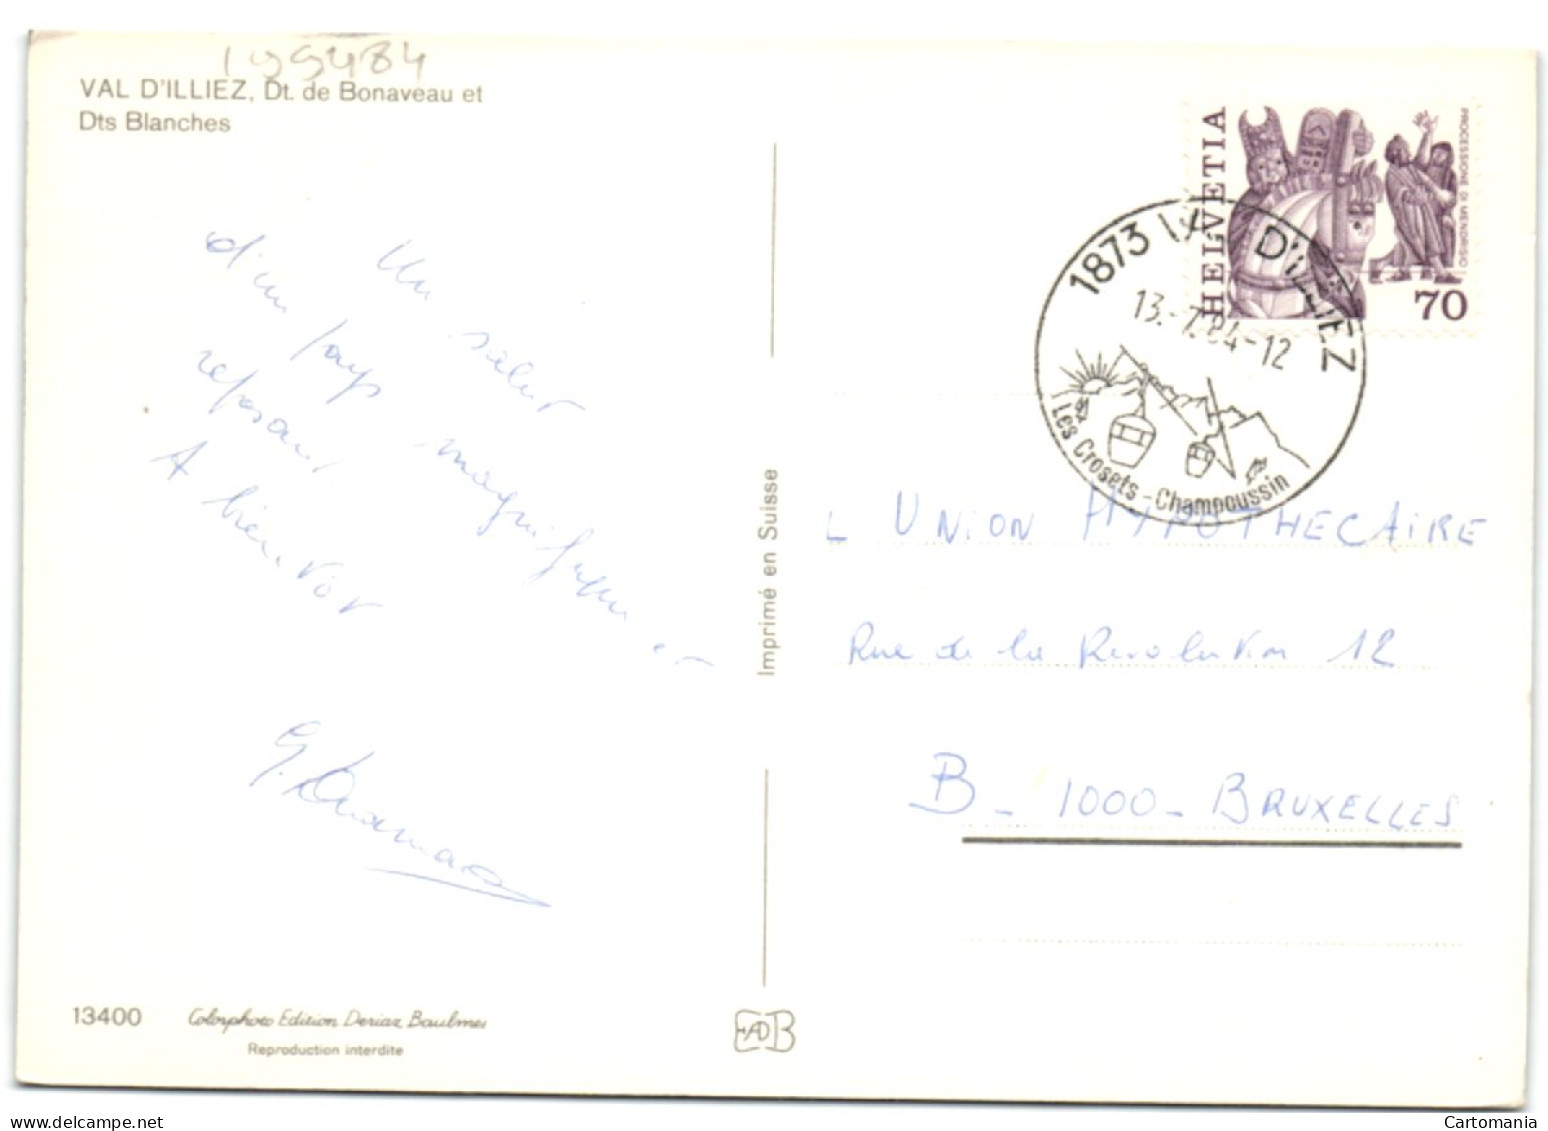 199484
VAL D'ILLIEZ, Dt. de Bonaveau et
Dts Blanches
Un salut
d'un pays magnifique et
reposant
A bientôt
13400
Colorphoto Edition Deriaz Baulmes
Reproduction interdite
Imprimé en Suisse
EADB
HELVETIA
PROCESSIONE DI MENDRISIO
70
1873 VAL D'ILLIEZ
13.-7.84-12
Les Crosets - Champoussin
L UNION HYPOTHECAIRE
Rue de la Revolution 12
B - 1000 - BRUXELLES
Cartomania